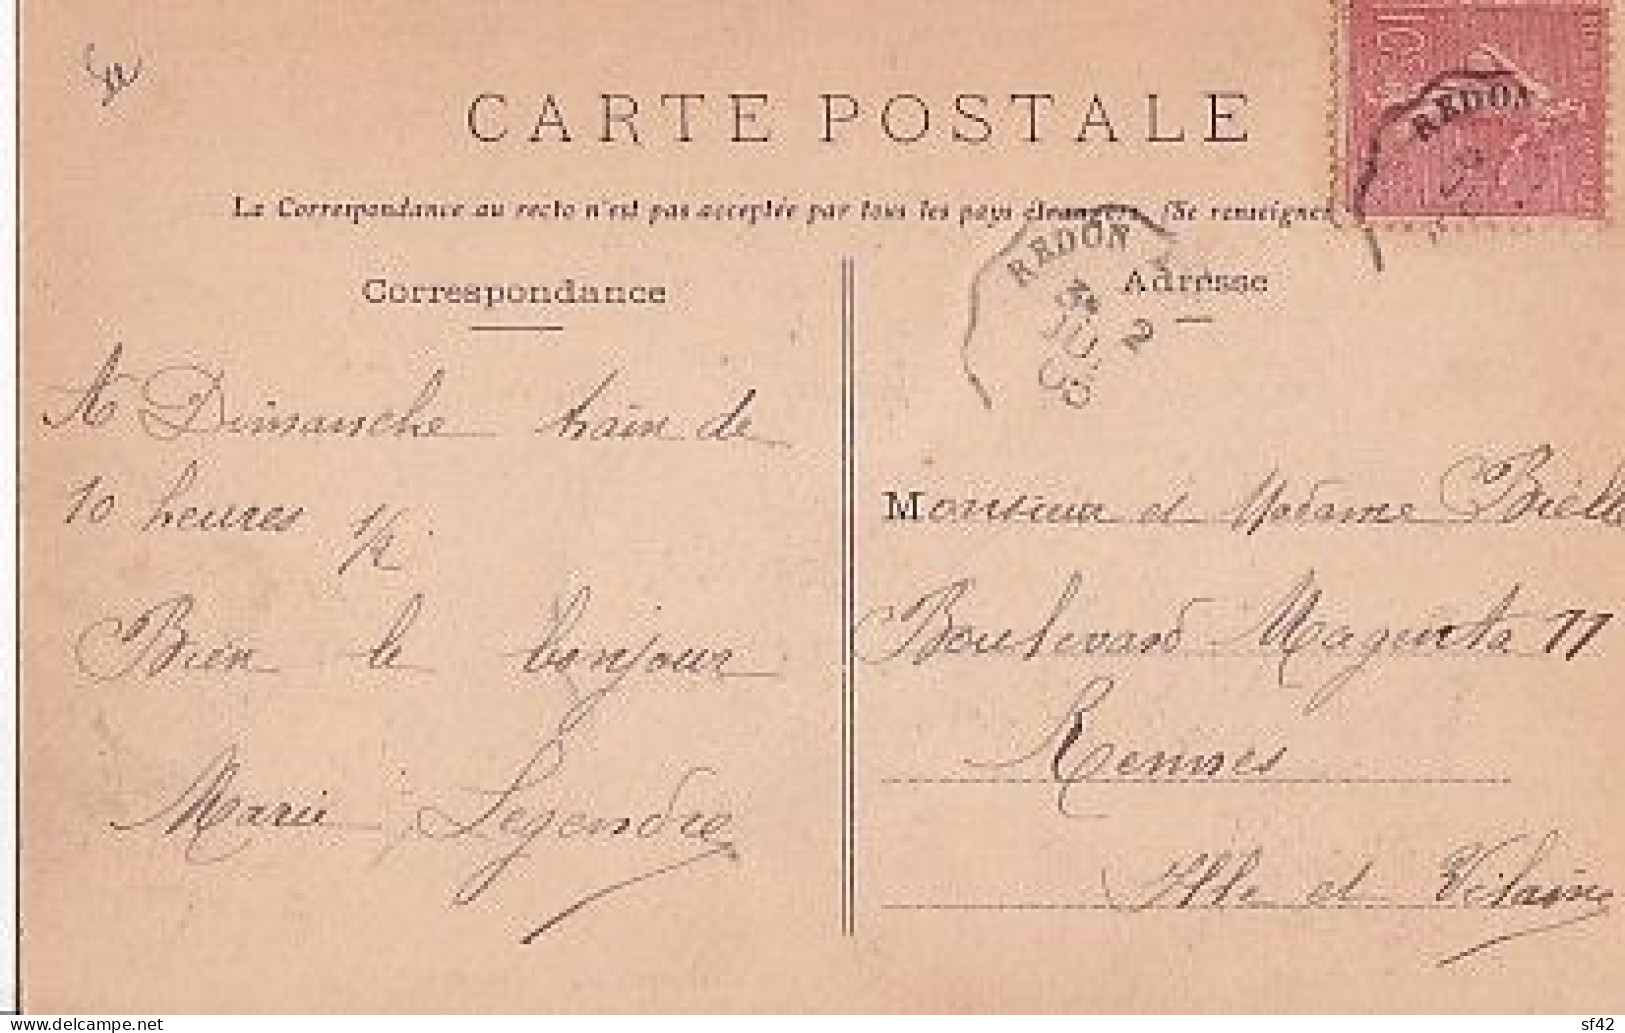 CARTE POSTALE
La Correspondance au recto n'est pas acceptée par tous les pays étrangers. (Se renseigner
REDON
REDON
2
Correspondance
A Dimanche train de
10 heures 1/2
Bien le bonjour
Marie Legendre
Adresse
Monsieur et Madame Bielle
Boulevard Magenta 11
Rennes
Ille et Vilaine
delcampe.net
sf42